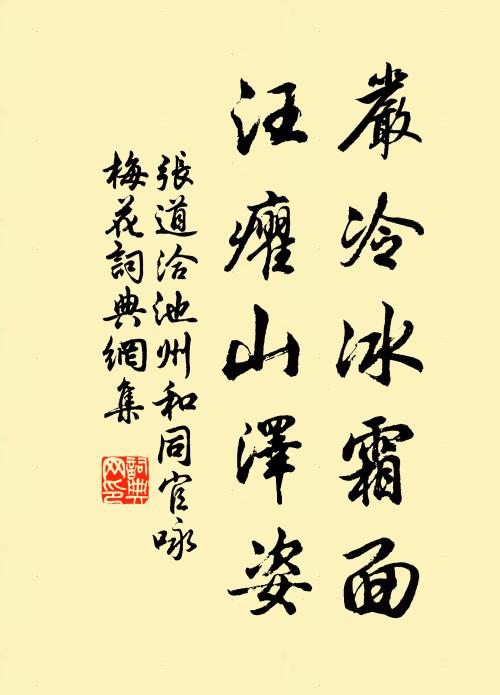 嚴冷冰霜面
汪癯山澤姿
張道洽池州和同官咏
梅花詞典網集
詞典網印